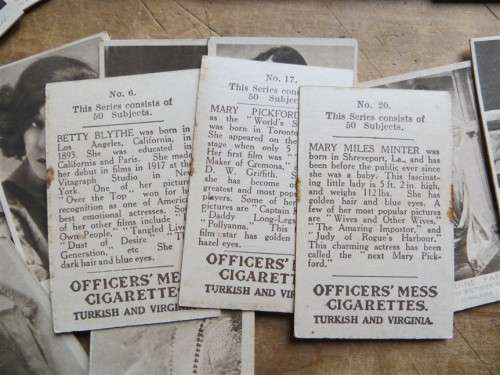 No. 6.
This Series consists of
50 Subjects.
BETTY BLYTHE was born in
Los Angeles, California, in
1893. She was educated in
California and Paris. She made
her debut in films in 1917 at the
Vitagraph Studio in New
York. One of her pictures
"Over the Top" won for her
recognition as one of America's
best emotional actresses. Some
of her other films include "
Own People," "Tangled Lives
"Dust of Desire" "The
Generation, etc She
dark hair and blue eyes.
OFFICERS' MESS
CIGARETTES.
TURKISH AND VIRGINIA
No. 17.
This Series consists
50 Subjects
MARY PICKFORD
as the "World's S
was born in Toronto
She appeared on the
stage when only 5
Her first film was "
Maker of Cremona,
D. W. Griffith. S
has become
greatest and most pop
players. Some of her
pictures are "Captain
"Daddy Long-Legs
"Pollyanna." This
film-star has golden
hazel eyes.
OFFICERS' MESS
CIGARETTES.
TURKISH AND VIRGINIA
No. 20.
This Series consists of
50 Subjects.
MARY MILES MINTER was
born in Shreveport, La., and has
been before the public ever since
she was a baby. This fascinat-
ing little lady is 5 ft. 2 in. high,
and weighs 112 lbs. She has
golden hair and blue eyes. A
few of her most popular pictures
are "Wives and Other Wives,"
"The Amazing Impostor," and
"Judy of Rogue's Harbour."
This charming actress has been
called the "next Mary Pick-
ford."
OFFICERS' MESS
CIGARETTES.
TURKISH AND VIRGINIA.